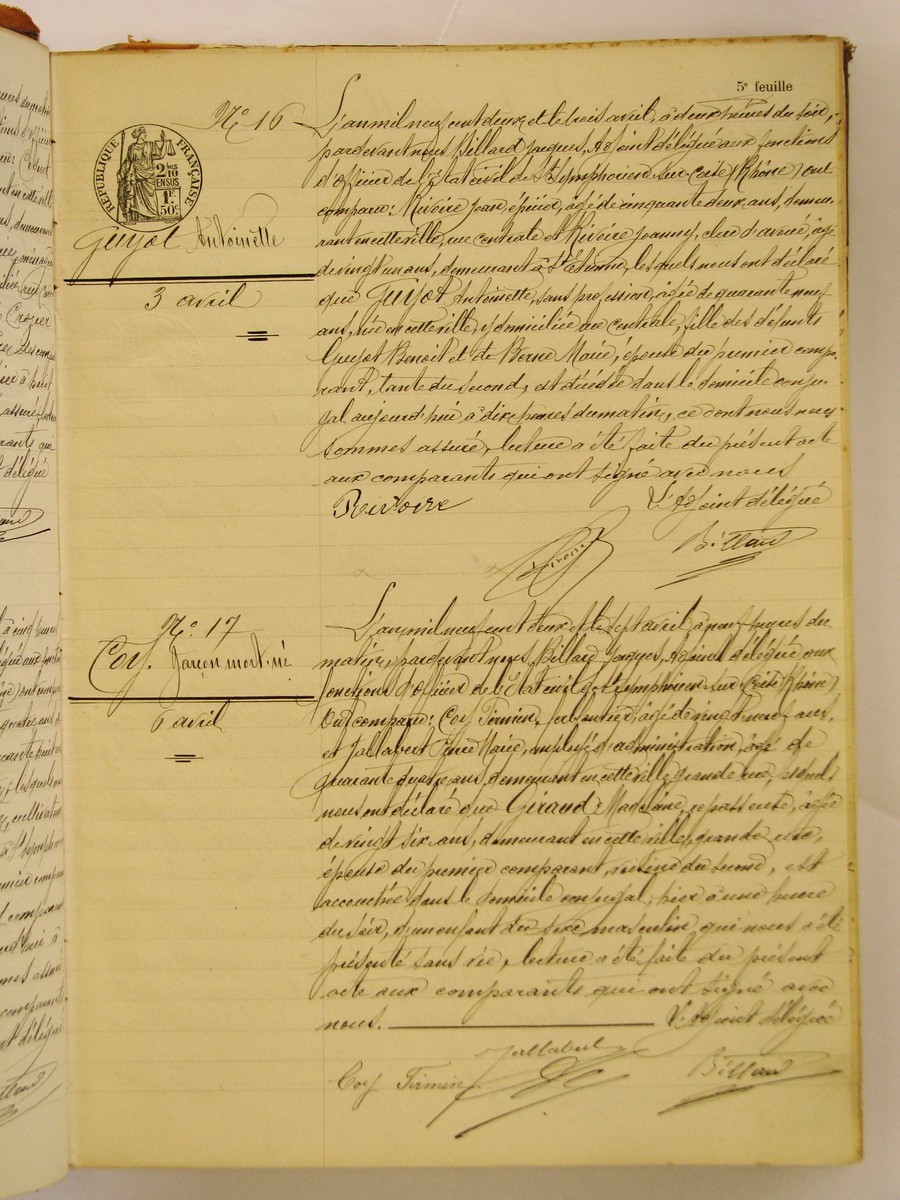 5e feuille
No 16
RÉPUBLIQUE FRANÇAISE
2/10
EN SUS
1F.
50c
Guyot Antoinette
3 avril
L'an mil neuf cent deux et le trois avril, à deux heures du soir,
pardevant nous Billard Jacques, Adjoint délégué aux fonctions
d'Officier de l'Etat civil de St Symphorien sur Coise (Rhône) ont
comparu: Rivoire Jean, épicier, âgé de cinquante deux ans, demeu-
rant en cette ville, rue centrale et Rivoire Joanny, clerc d'avoué, âgé
de vingt un ans, demeurant à St Etienne, lesquels nous ont déclaré
que Guyot Antoinette, sans profession, âgée de quarante neuf
ans, née en cette ville, y domiciliée rue centrale, fille des défunts
Guyot Benoit et de Berne Marie, épouse du premier compa-
rant, tante du second, est décédée dans le domicile conju-
gal aujourd'hui à dix heures du matin, ce dont nous nous
sommes assuré, lecture a été faite du présent acte
aux comparants qui ont signé avec nous
L'Adjoint délégué
Rivoire
Rivoire J
Billard
No 17
Coy. Garçon mort-né
6 avril
L'an mil neuf cent deux et le sept avril, à neuf heures du
matin, pardevant nous, Billard Jacques, Adjoint délégué aux
fonctions d'Officier de l'Etat civil de St Symphorien sur Coise (Rhône)
Ont comparu: Coy Firmin, ferblantier, âgé de vingt neuf ans,
et Jallabert Pierre Marie, employé d'administration, âgé de
quarante quatre ans, demeurant en cette ville, grande rue, lesquels
nous ont déclaré que Giraud Madeleine, repasseuse, âgée
de vingt six ans, demeurant en cette ville, grande rue,
épouse du premier comparant, voisine du second, est
accouchée dans le domicile conjugal, hier à une heure
du soir, d'un enfant du sexe masculin, qui nous a été
présenté sans vie, lecture a été faite du présent
acte aux comparants qui ont signé avec
nous. L'Adjoint délégué
Jallabert
Coy Firmin
Billard